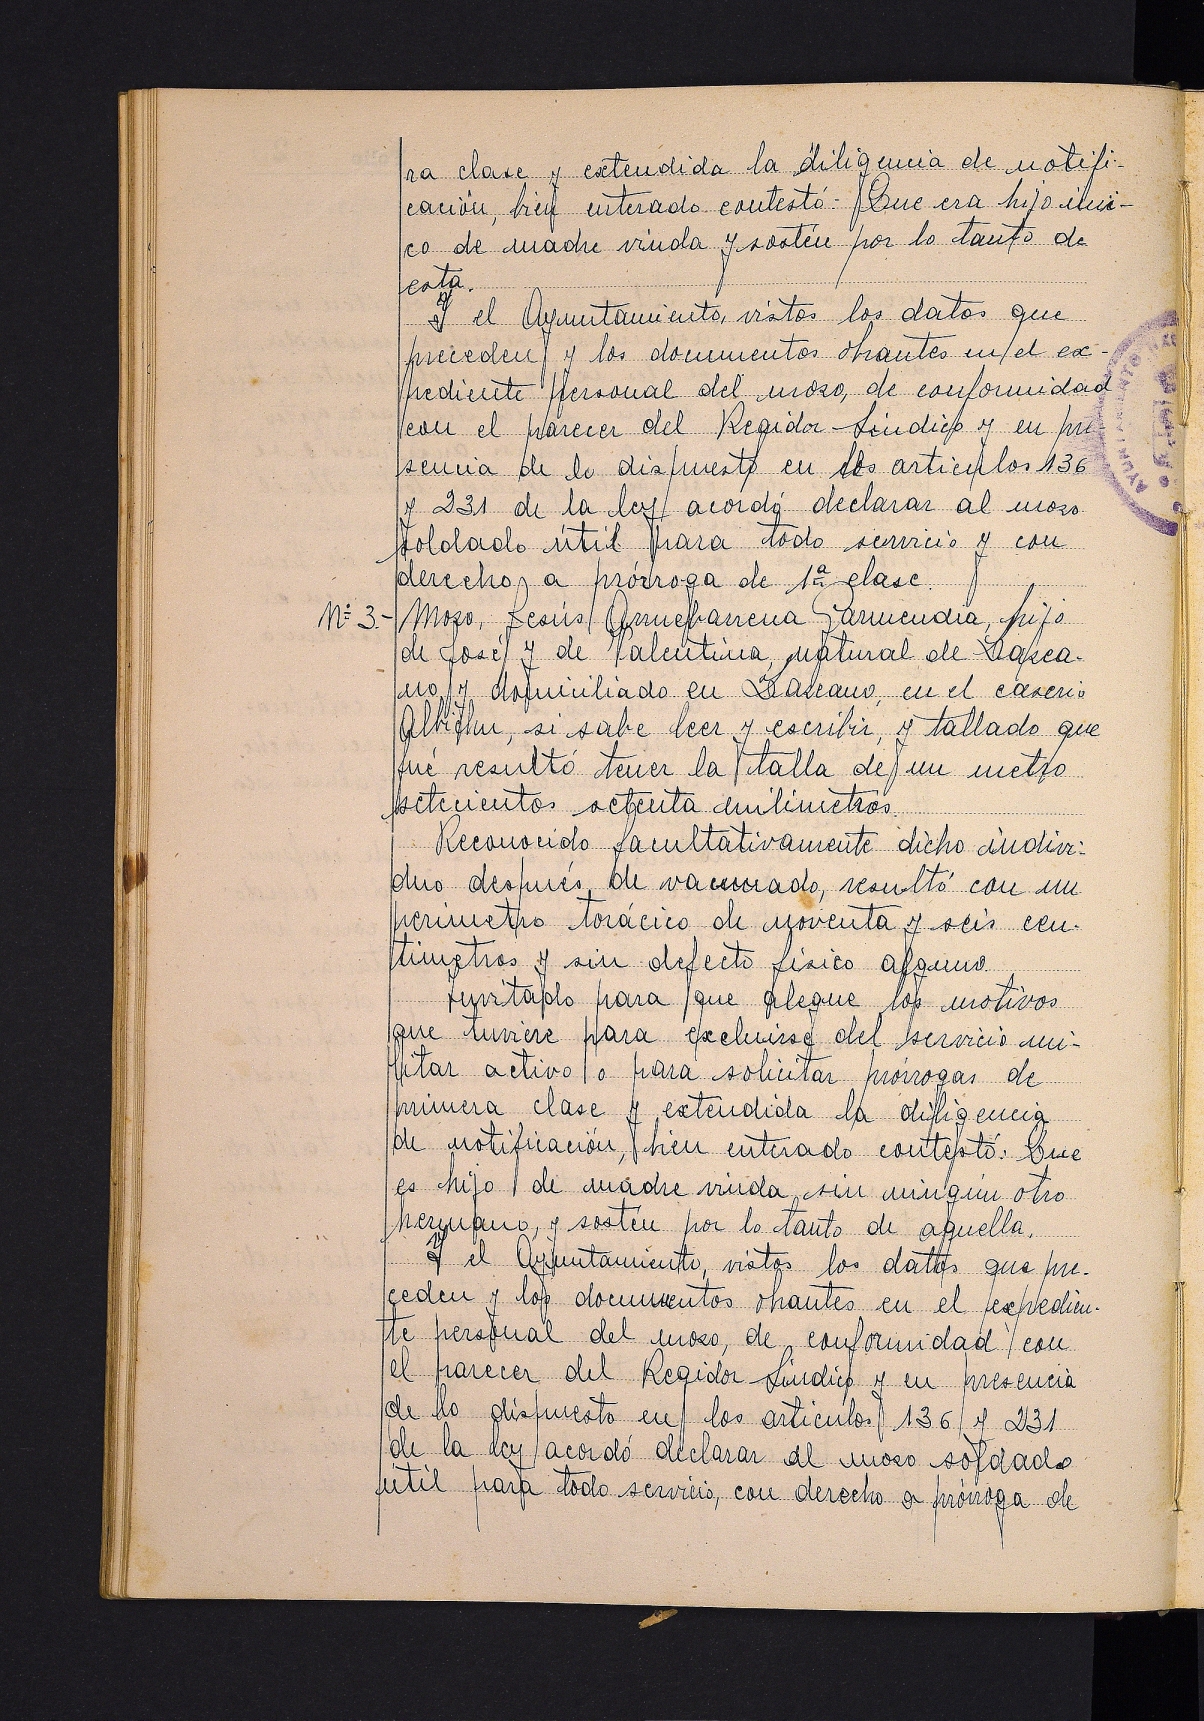 ra clase y extendida la diligencia de notifi-
cación, bien enterado contestó: Que era hijo úni-
co de madre viuda y sostén por lo tanto de
esta.
Y el Ayuntamiento, vistos los datos que
preceden y los documentos obrantes en el ex-
pediente personal del mozo, de conformidad
con el parecer del Regidor Síndico y en pre
sencia de lo dispuesto en los articulos 136
y 231 de la ley acordó declarar al mozo
soldado útil para todo servicio y con
derecho a prórroga de 1ª clase.
Nº 3.- Mozo, Jesús Arruebarrena Garmendia, hijo
de José y de Valentina, natural de Lazca-
no y domiciliado en Lazcano, en el caserio
si sabe leer y escribir, y tallado que
fué resultó tener la talla de un metro
setecientos setenta milímetros.
Reconocido facultativamente dicho indivi-
duo después de vacunado, resultó con un
perimetro torácico de noventa y seis cen-
timetros y sin defecto físico alguno.
Invitado para que alegue los motivos
que tuviere para excluirse del servicio mi-
litar activo o para solicitar prórrogas de
primera clase y extendida la diligencia
de notificación, bien enterado contestó: Que
es hijo de madre viuda sin ningún otro
hermano, y sostén por lo tanto de aquella.
Y el Ayuntamiento, vistos los datos que pre-
ceden y los documentos obrantes en el expedien-
te personal del mozo, de conformidad con
el parecer del Regidor Síndico y en presencia
de lo dispuesto en los articulos 136 y 231
de la ley acordó declarar al mozo soldado
útil para todo servicio, con derecho a prórroga de
AYUNTAMIENTO